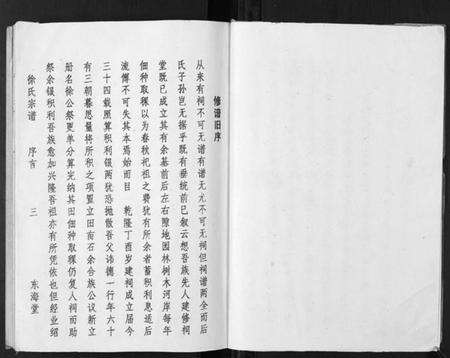 修谱旧序
从来有祠不可无谱有谱无尤不可无祠但祠谱两全而后
氏子孙岂无据乎既有垂统前已叙云想吾族先人建修祠
堂既已成立其有余基前后左右隙地园林树木河岸每年
佃种取稞以为春秋祀祖之费犹有所余者蓄积利息适后
流傳不可失其本焉始而目 乾隆丁酉岁建祠成立届今
三十四载照算积利银两犹恐抛散吾父讳德一行年六十
有三朝暮思量将所积之项置立田亩石余合族公议新立
册名徐公祭更单分算完纳其田佃种取稞仍复入祠而助
祭余银积利吾族愈加兴隆吾祖亦有所凭依也但经业绍
徐氏宗谱 序言 三 东海堂